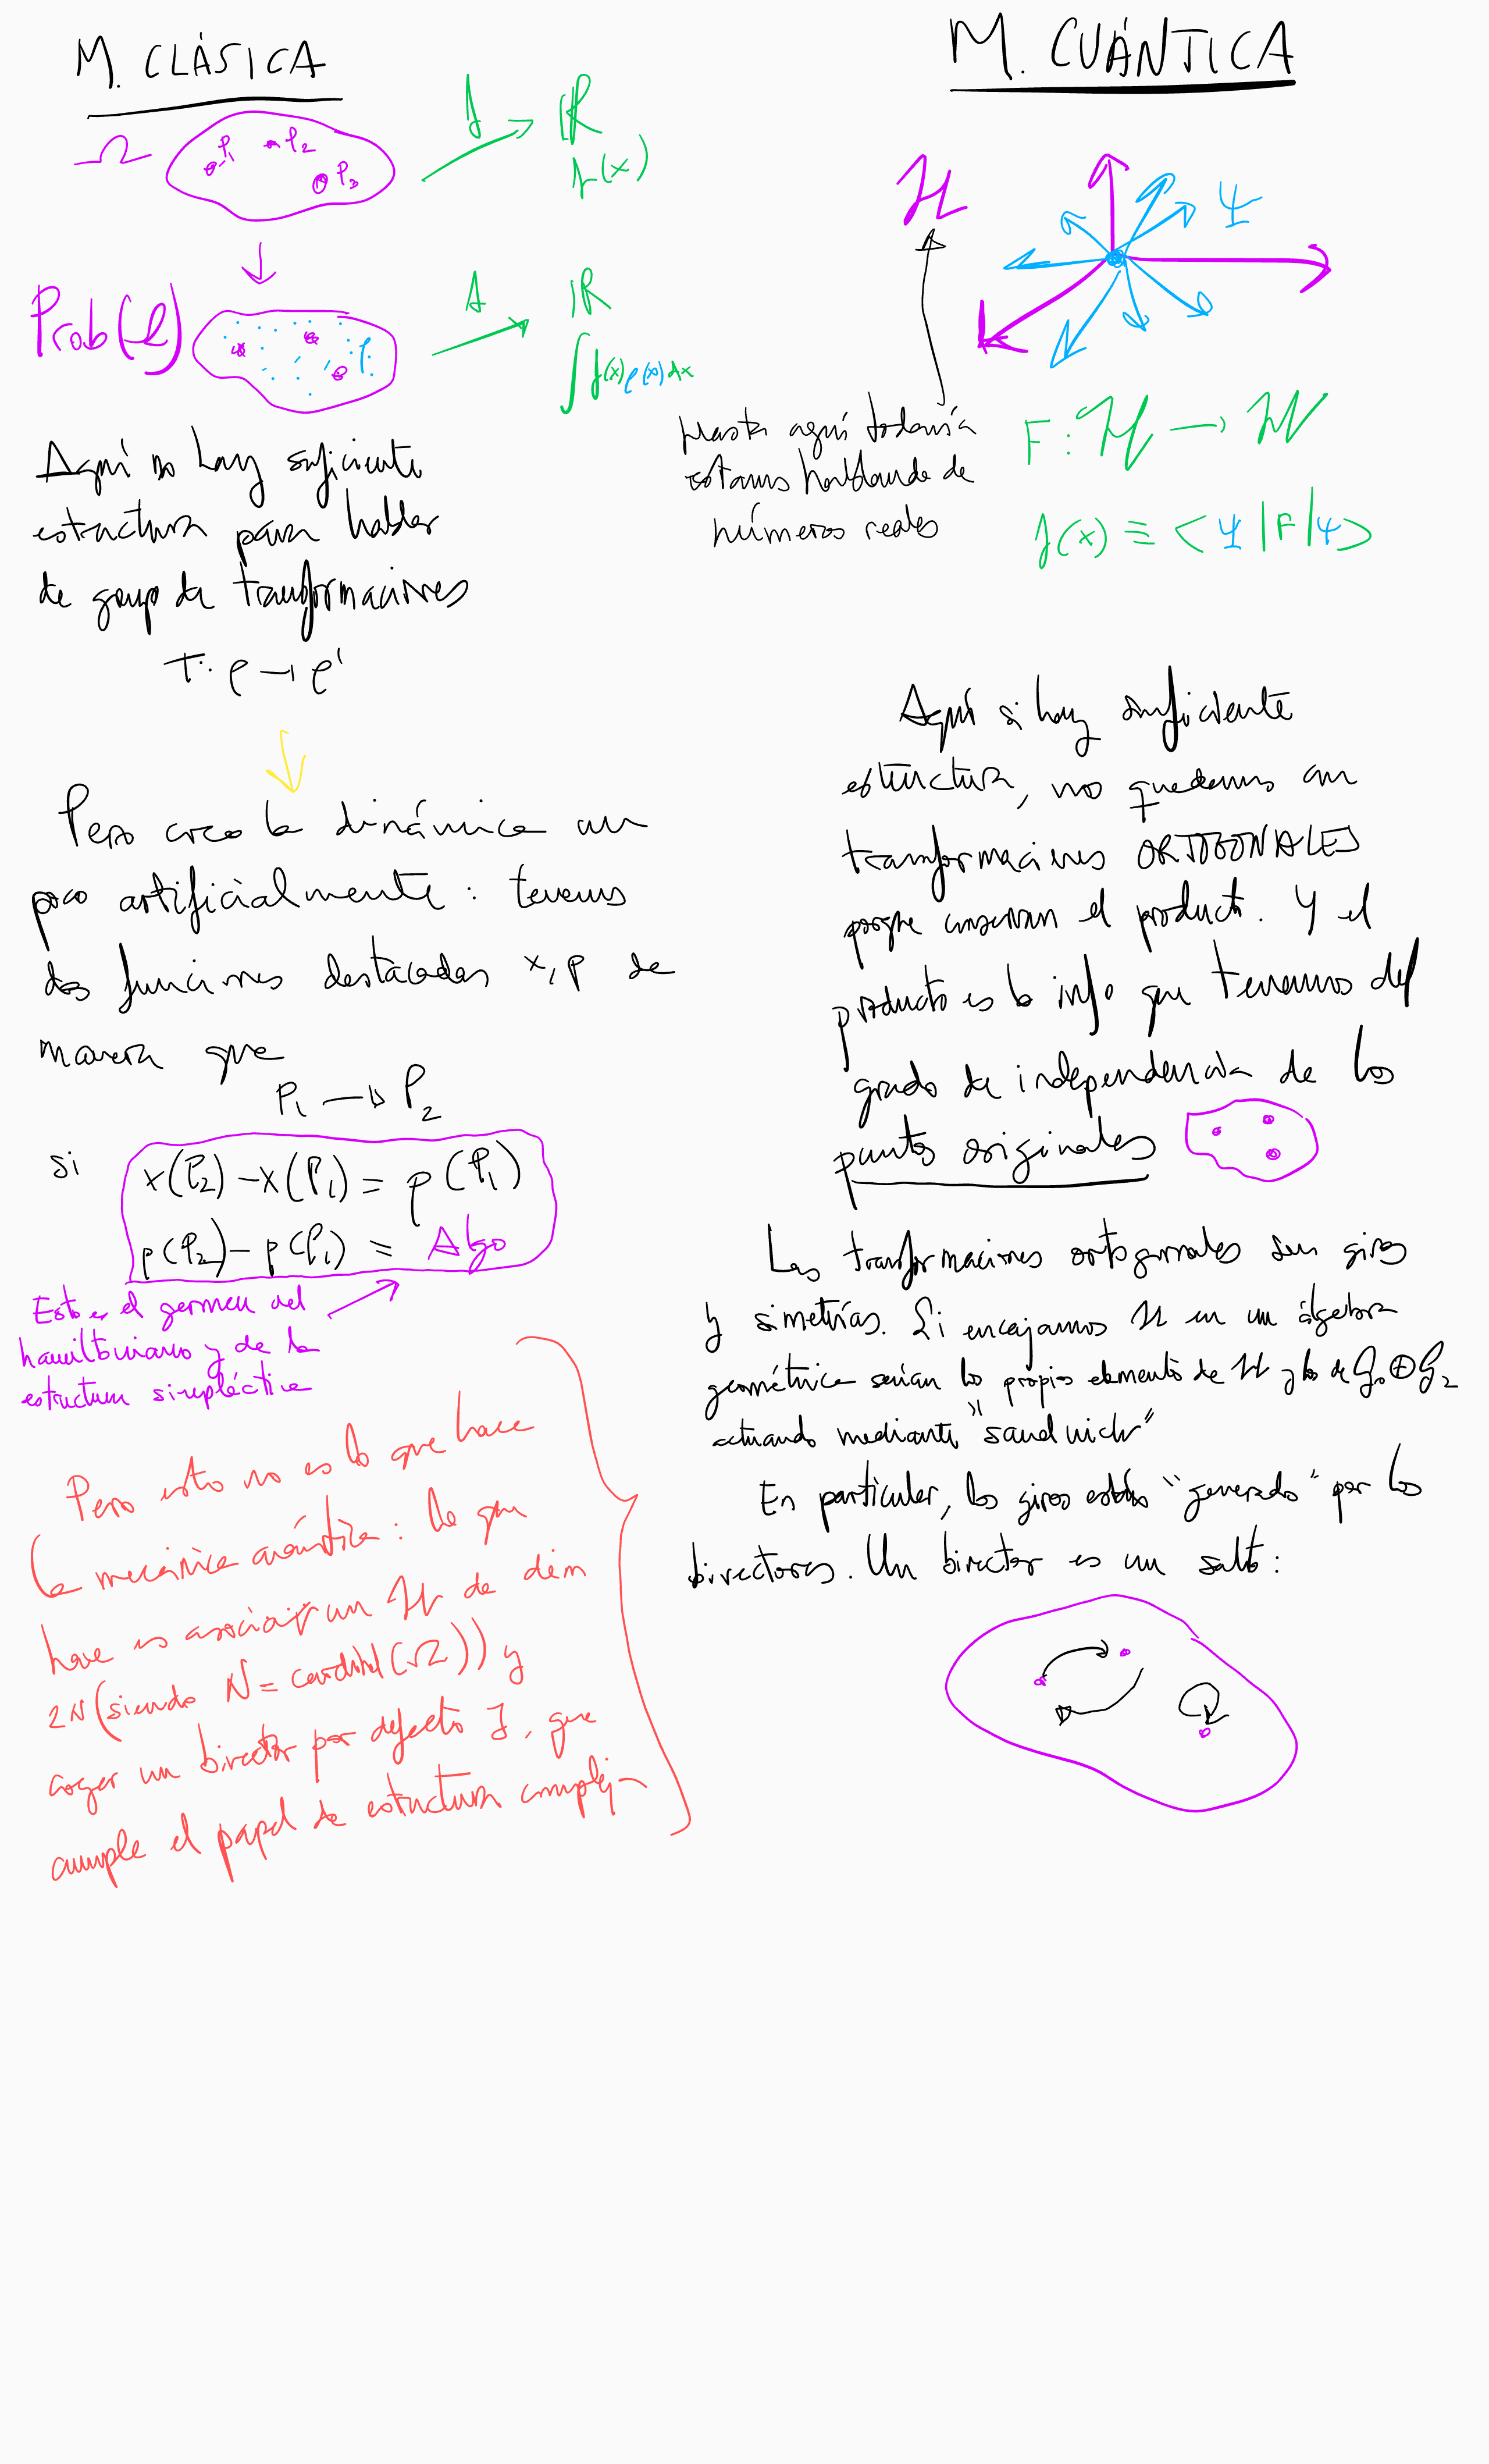 M. CLÁSICA
Ω
P₁
P₂
P₃
f
ℝ
f(x)
Prob(Ω)
ρ
f
ℝ
∫ f(x) ρ(x) dx
Aquí no hay suficiente
estructura para hablar
de grupo de transformaciones
T: ρ → ρ'
Pero creo la dinámica un
poco artificialmente: tenemos
dos funciones destacadas x, p de
manera que
P₁ → P₂
si
x(P₂) - x(P₁) = p(P₁)
p(P₂) - p(P₁) = Algo
Esto es el germen del
hamiltoniano y de la
estructura simpléctica
Pero esto no es lo que hace
la mecánica cuántica: lo que
hace es asociar un H de dim
2N (siendo N = cardinal(Ω)) y
coger un bivector por defecto J, que
cumple el papel de estructura compleja
M. CUÁNTICA
H
Ψ
Hasta aquí todavía
estamos hablando de
números reales
F: H → H
f(x) ≡ <Ψ|F|Ψ>
Aquí si hay suficiente
estructura, nos quedamos con
transformaciones ORTOGONALES
porque conservan el producto. Y el
producto es la info que tenemos del
grado de independencia de los
puntos originales
Las transformaciones ortogonales son giros
y simetrías. Si encajamos H en un álgebra
geométrica serían los propios elementos de H y los de G₀ ⊕ G₂
actuando mediante "sandwich"
En particular, los giros están "generado" por los
bivectores. Un bivector es un salto: